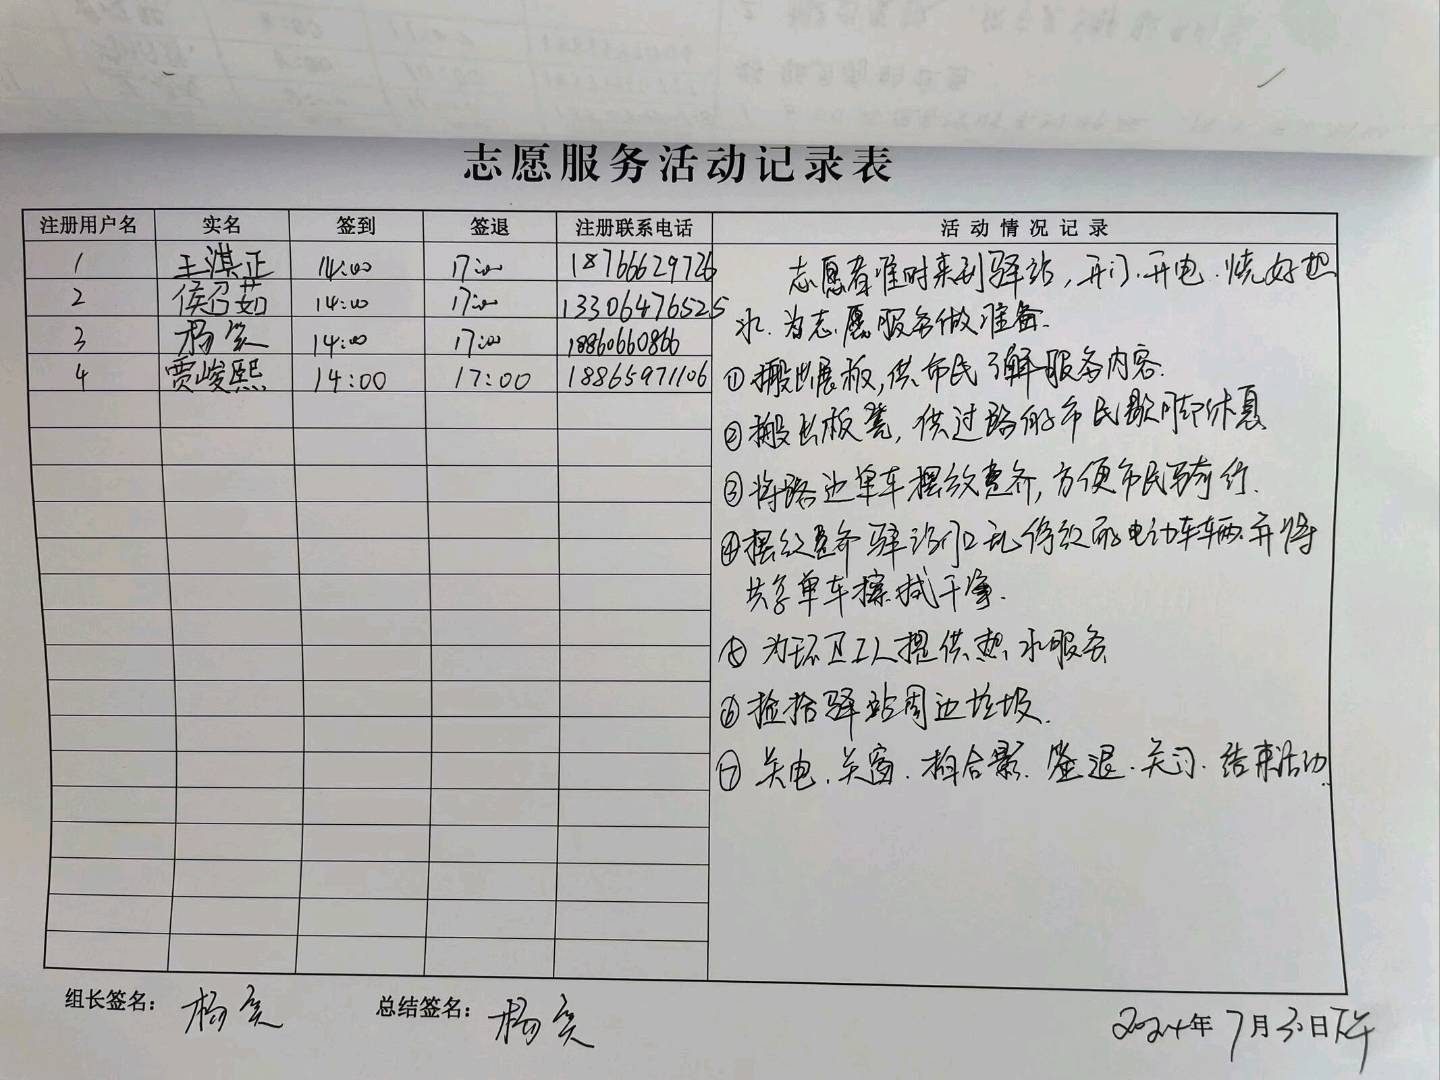 志愿服务活动记录表
注册用户名 实名 签到 签退 注册联系电话 活动情况记录
1 王淇正 14:00 17:00 18766629726
2 侯召茹 14:00 17:00 13306476525
3 杨奕 14:00 17:00 18860660866
4 贾峻熙 14:00 17:00 18865971106
志愿者准时来到驿站,开门.开电.烧好热
水.为志愿服务做准备.
①搬出展板,供市民了解服务内容.
②搬出板凳,供过路的市民歇脚休息
③将路边单车摆放整齐,方便市民骑行.
④摆放整齐驿站门口乱停放的电动车车辆.并将
共享单车擦拭干净.
⑤为环卫工人提供热水服务
⑥捡拾驿站周边垃圾.
⑦关电.关窗.拍合影.签退.关门.结束活动.
组长签名: 杨奕 总结签名: 杨奕
2024年7月30日下午